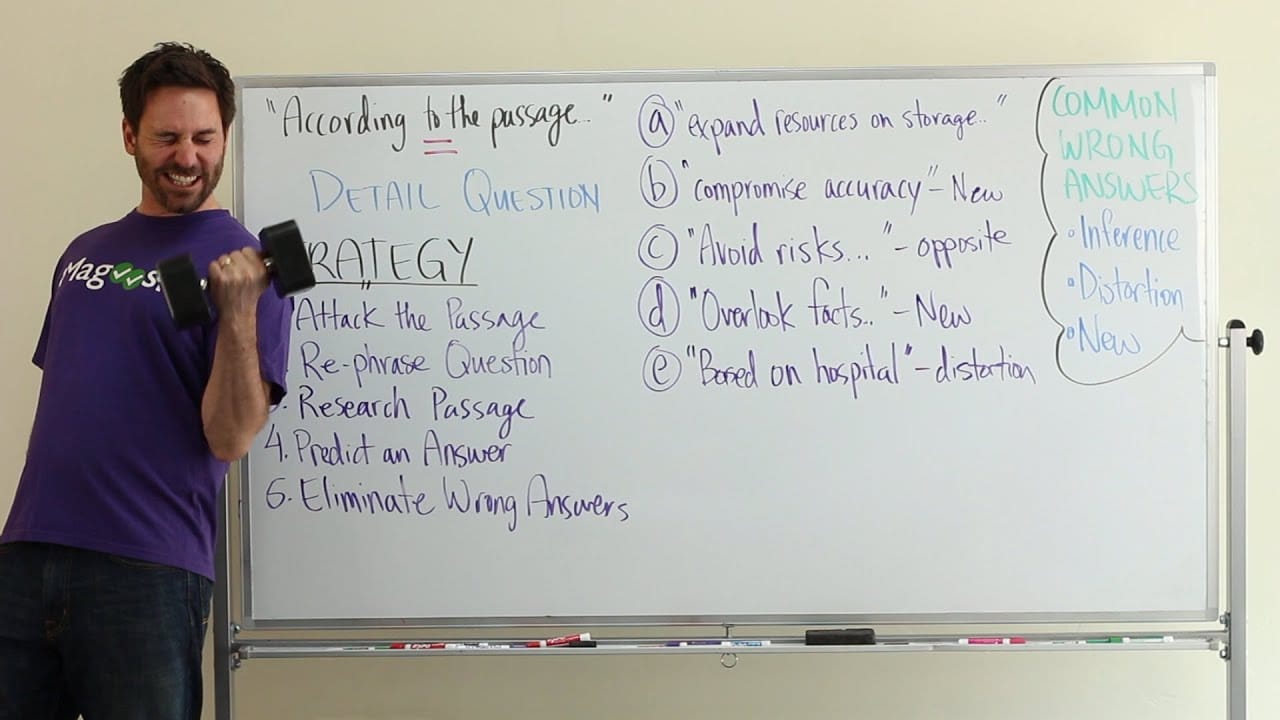 Mag
"According to the passage.."
DETAIL QUESTION
RATEGY
Attack the Passage
Re-phrase Question
3. Research Passage
4. Predict an Answer
6. Eliminate Wrong Answers
a "expand resources on storage.."
b "compromise accuracy" - New
c "Avoid risks... " - opposite
d "Overlook facts.." - New
e "Based on hospital" - distortion
COMMON
WRONG
ANSWERS
• Inference
• Distortion
• New
EXPO